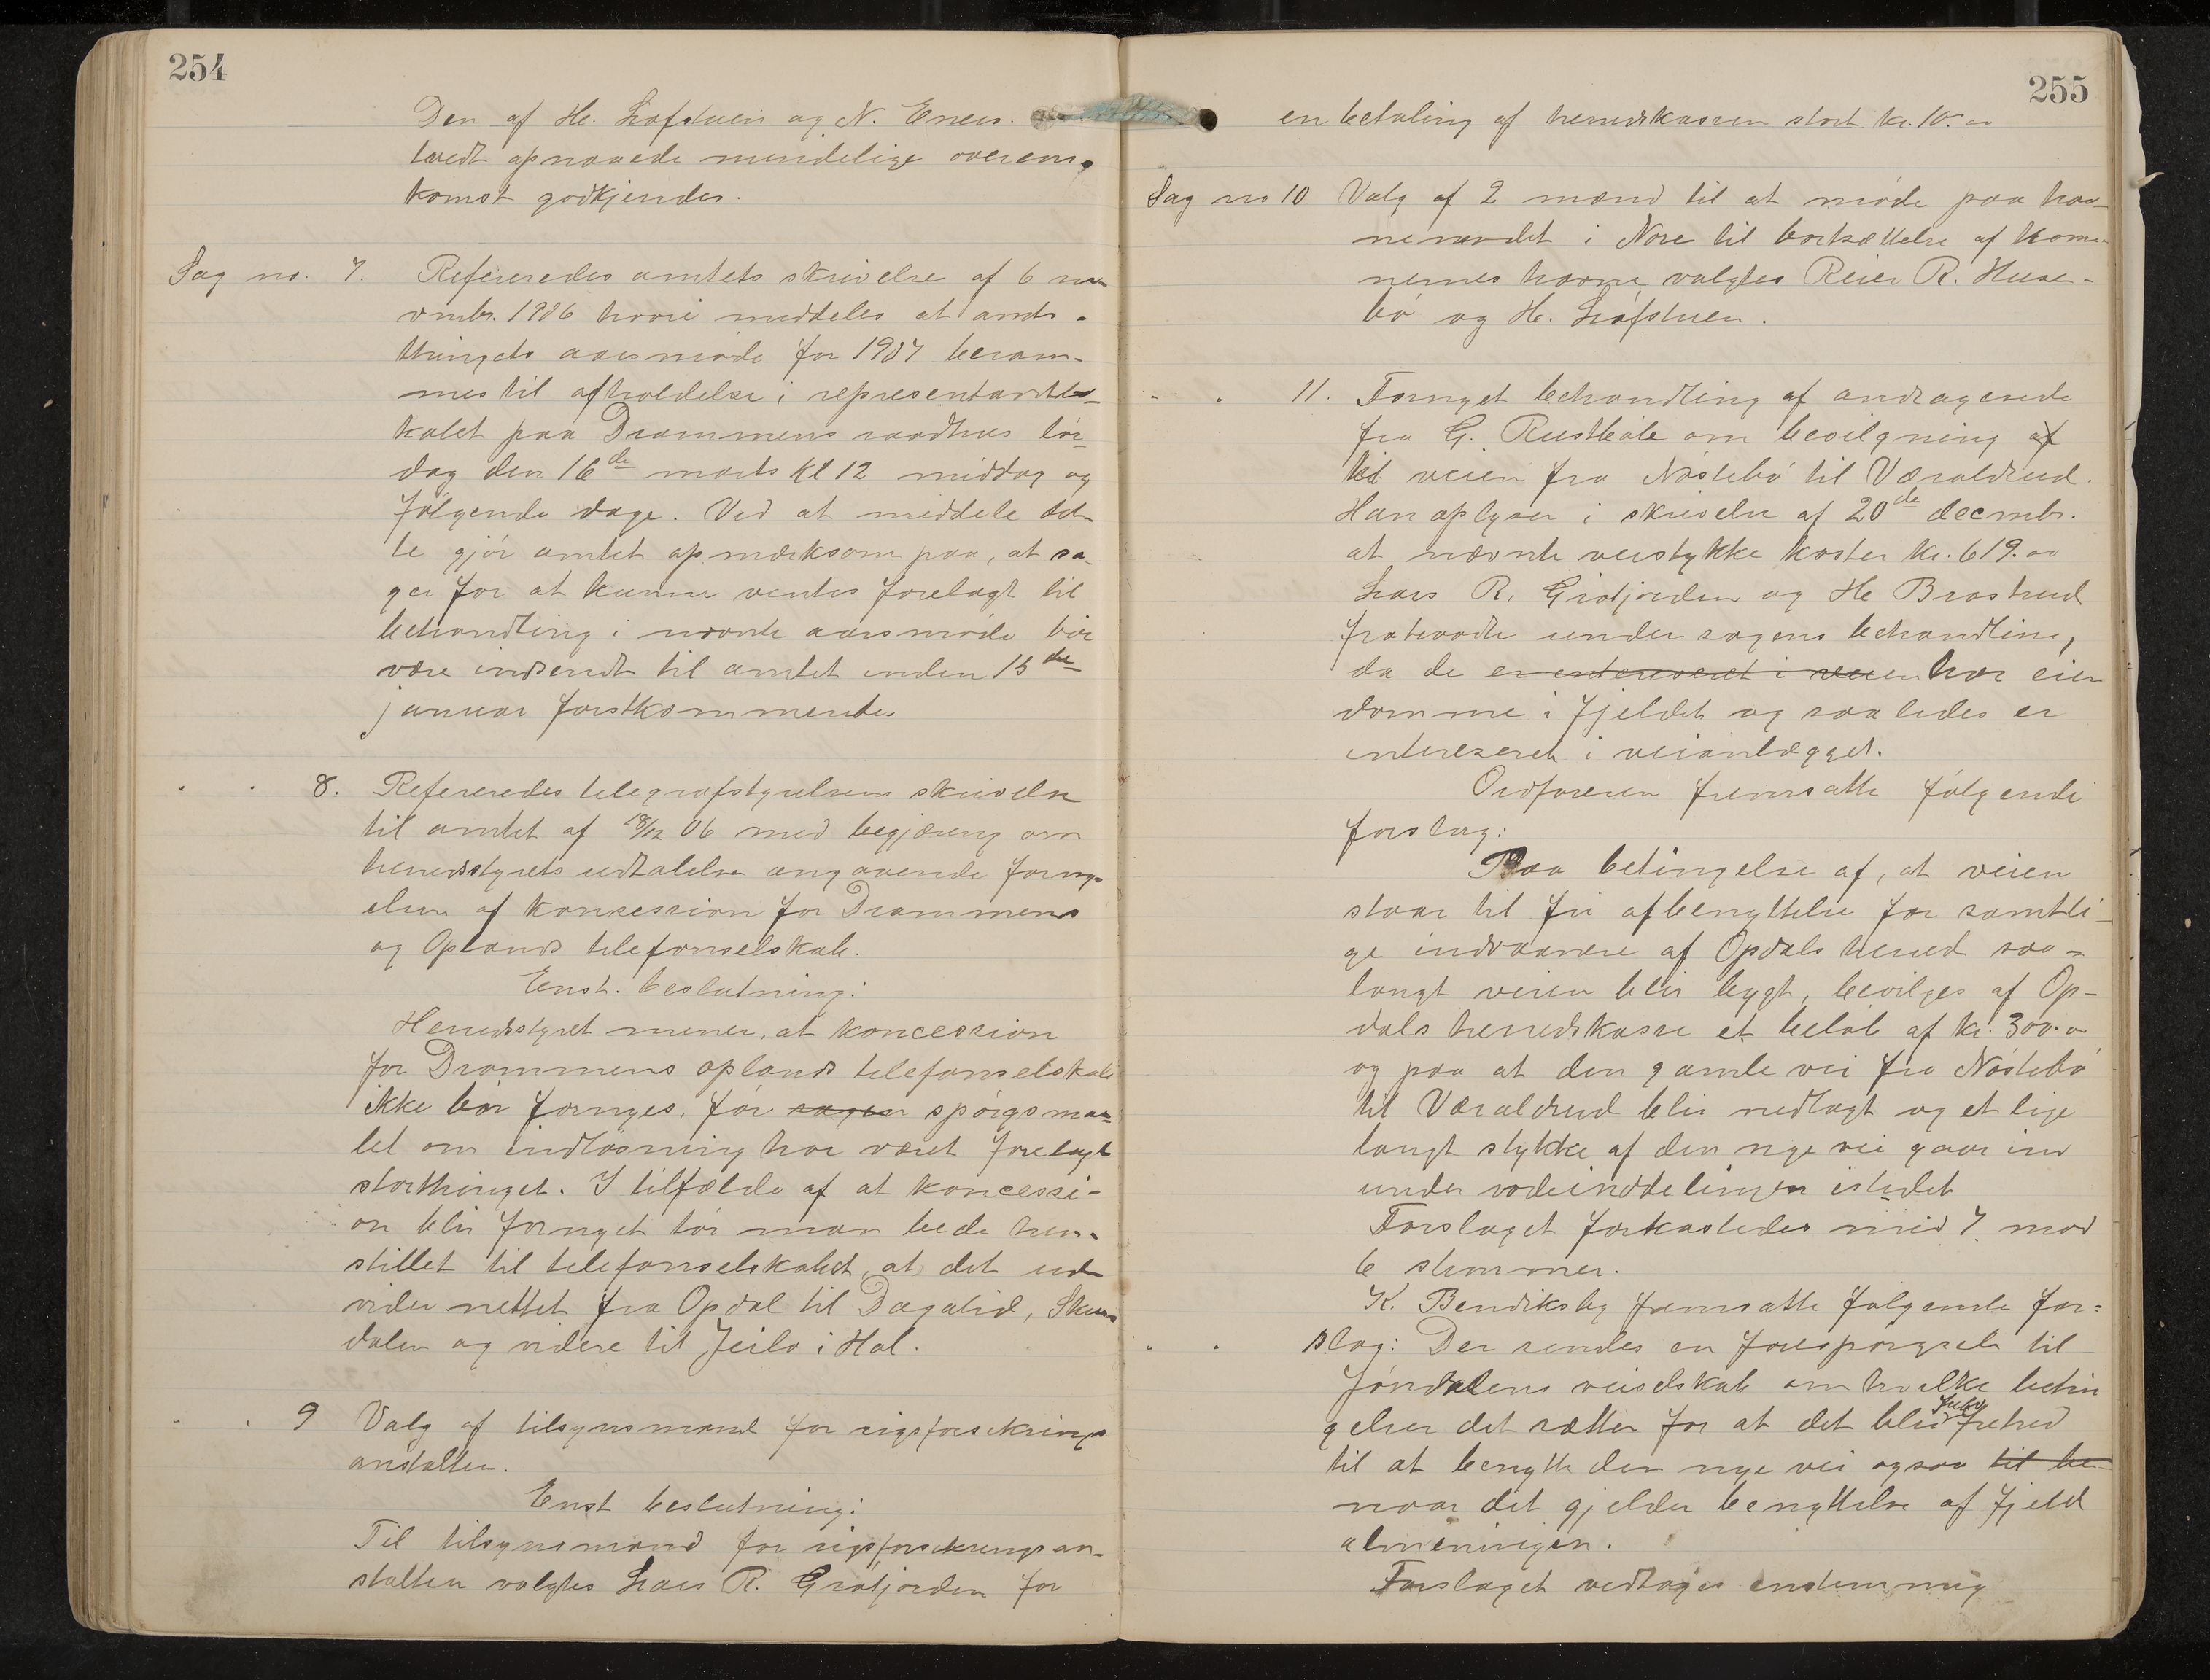 254
Den af H. Lofstuen og N. Eners-
tvedt opnaaede mindelige overens-
komst godkjendes.
Sag no. 7. Refereredes amtets skrivelse af 6 no-
vmbr. 1906 hvori meddeles at amts-
thingets aarsmøde for 1907 beram-
mes til afholdelse i representantlo-
kalet paa Drammens raadhus lör-
dag den 16de marts kl 12 middag og
fölgende dage. Ved at meddele det-
te gjör amtet opmærksom paa, at sa-
ger for at kunne ventes forelagt til
behandling i nævnte aarsmöde bör
være indsendt til amtet inden 15de
januar förstkommende.
" " 8. Refereredes telegrafstyrelsens skrivelse
til amtet af 18/12 06 med begjæring om
herredsstyrets udtalelse angaaende forny-
elsen af konsession for Drammens
og Oplands telefonselskab.
Enst. beslutning:
Herredsstyret mener, at koncession
for Drammens oplands telefonselskab
ikke bör fornyes, för sagen spörgsmaa-
let om indlösning har været forelagt
storthinget. I tilfælde af at koncessi-
on blir fornyet tör man bede hen-
stillet til telefonselskabet, at det ud-
vider nettet fra Opdal til Dagalid, Skurs
dalen og videre til Jeilo i Hol.
" " 9 Valg af tilsynsmand for rigsforsikrings
anstalten.
Enst beslutning:
Til tilsynsmand for rigsforsikringsan-
stalten valgtes Lars R. Grötjorden for
255
en betaling af herredskassen stort kr. 10.00
Sag no 10 Valg af 2 mænd til at möde paa hav-
nemödet i Nore til bortsættelse af
nernes havne valgtes Reier R. Huse-
bö og H. Löfstuen.
" " 11. Fornyet behandling af andragende
fra G. Rustböle om bevilgning af
til veien fra Nöstebö til Væraldrud.
Han oplyser i skrivelse af 20de decmbr.
at nævnte veistykke koster kr. 619.00
Lars R. Grötjorden og H Brostrud
fratraadte under sagens behandling,
da de er intereseret i veien har eien
domme i fjeldet og saaledes er
intereseret i veianlægget.
Ordföreren fremsatte fölgende
forslag:
Paa betingelse af, at veien
staar til fri afbenyttelse for samtli-
ge indvaanere af Opdals herred saa-
langt veien blir bygt, bevilges af Op-
dals herredskasse et belöb af kr. 300.00
og paa at den gamle vei fra Nöstebö
til Væraldrud blir nedlagt og et lige
langt stykke af den nye vei gaar ind
under rodeinddelingen istedet
Forslaget forkastedes med 7 mod
6 stemmer.
K. Bendiksby fremsatte fölgende for-
" " slag: Der sendes en forespörgsel til
Jöndalens veiselskab om hvilke betin
gelser det sætter for at det blir herred
til at benytte den nye vei ogsaa til be-
naar det gjelder benyttelse af fjeld
almeningen.
Forslaget vedtoges enstemmig